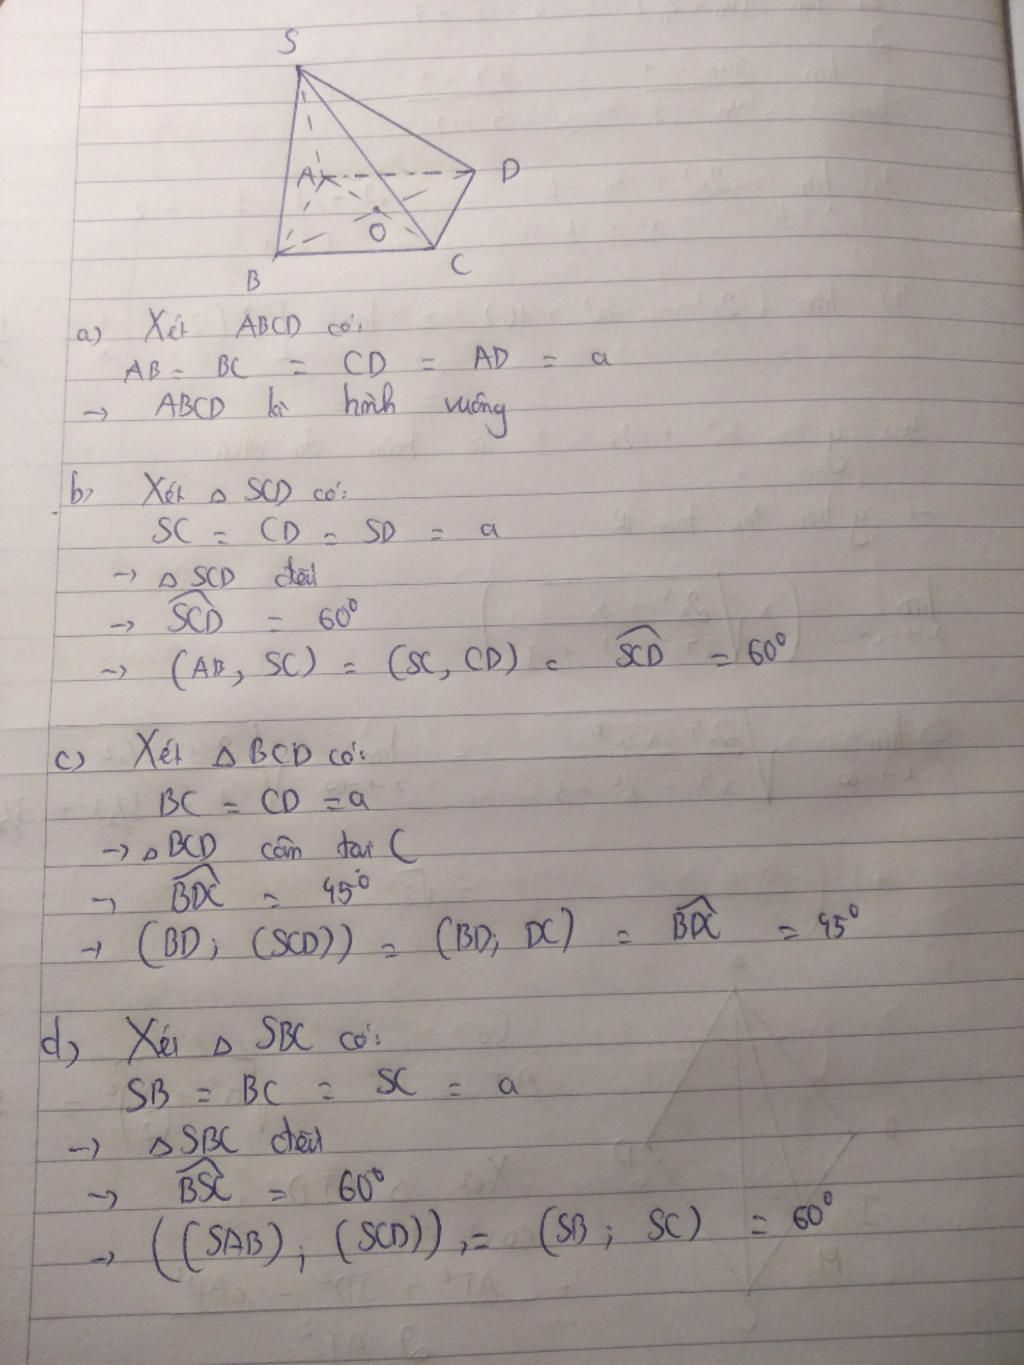 S
A
D
O
B
C
a) Xét ABCD có:
AB = BC = CD = AD = a
→ ABCD là hình vuông
b, Xét △ SCD có:
SC = CD = SD = a
→ △ SCD đều
→ SCD = 60°
→ (AB, SC) = (SC, CD) = SCD = 60°
c) Xét △ BCD có:
BC = CD = a
→ △ BCD cân tại C
→ BDC = 45°
→ (BD; (SCD)) = (BD; DC) = BDC = 45°
d, Xét △ SBC có:
SB = BC = SC = a
→ △ SBC đều
→ BSC = 60°
→ ((SAB); (SCD)) = (SB; SC) = 60°